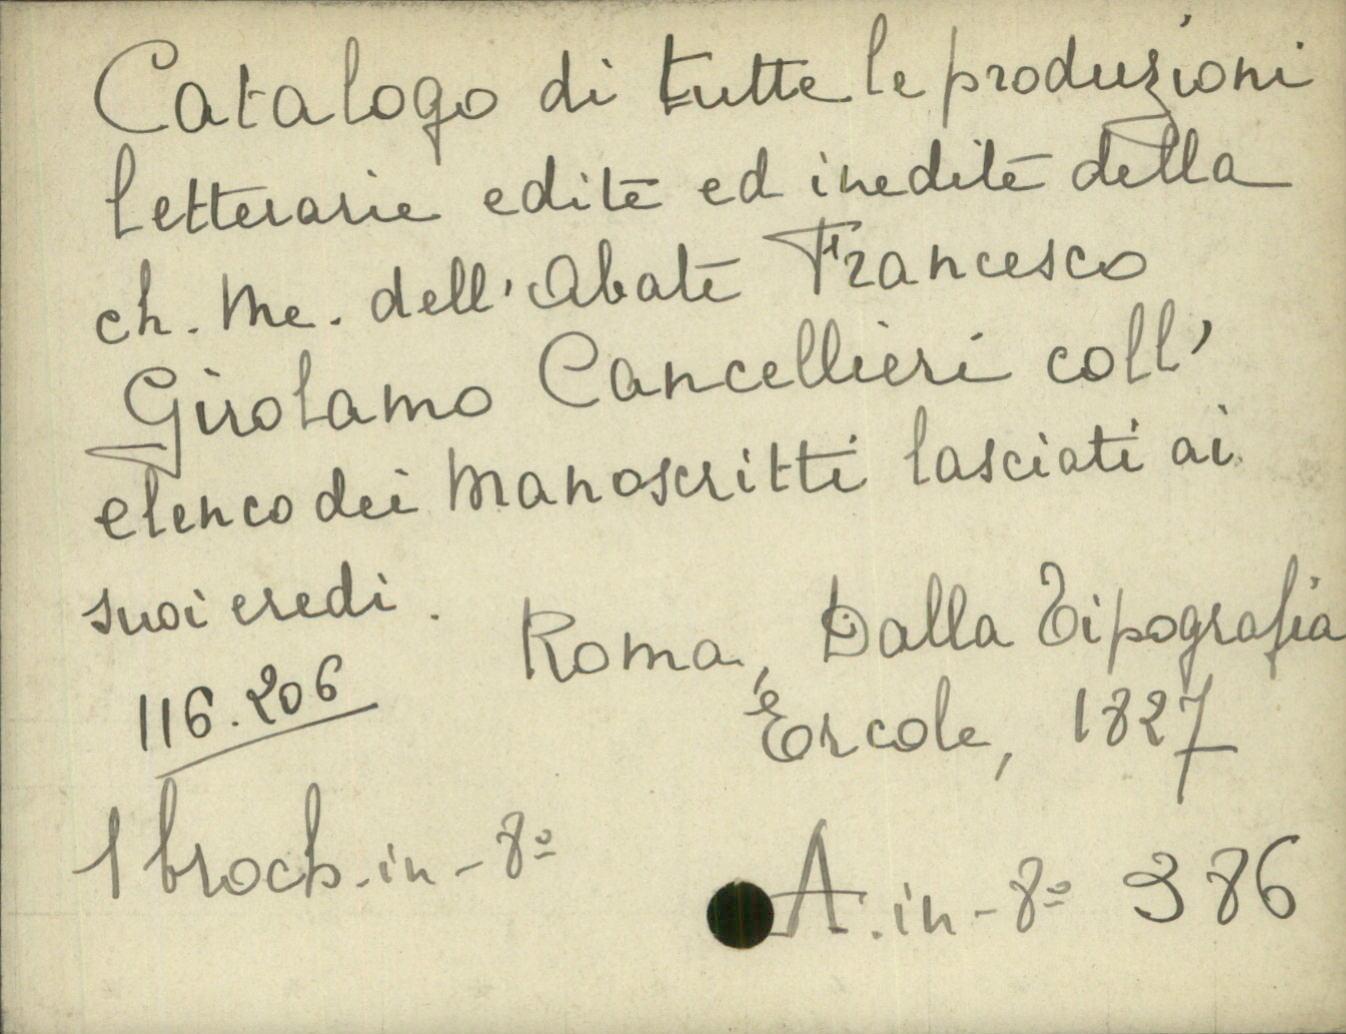 Catalogo di tutte le produzioni
letterarie edite ed inedite della
ch. me. dell'Abate Francesco
Girolamo Cancellieri coll'
elenco dei manoscritti lasciati ai
suoi eredi.
Roma, Dalla Tipografia
Ercole, 1827
116.206
1 broch. in-8º
A. in-8º 386